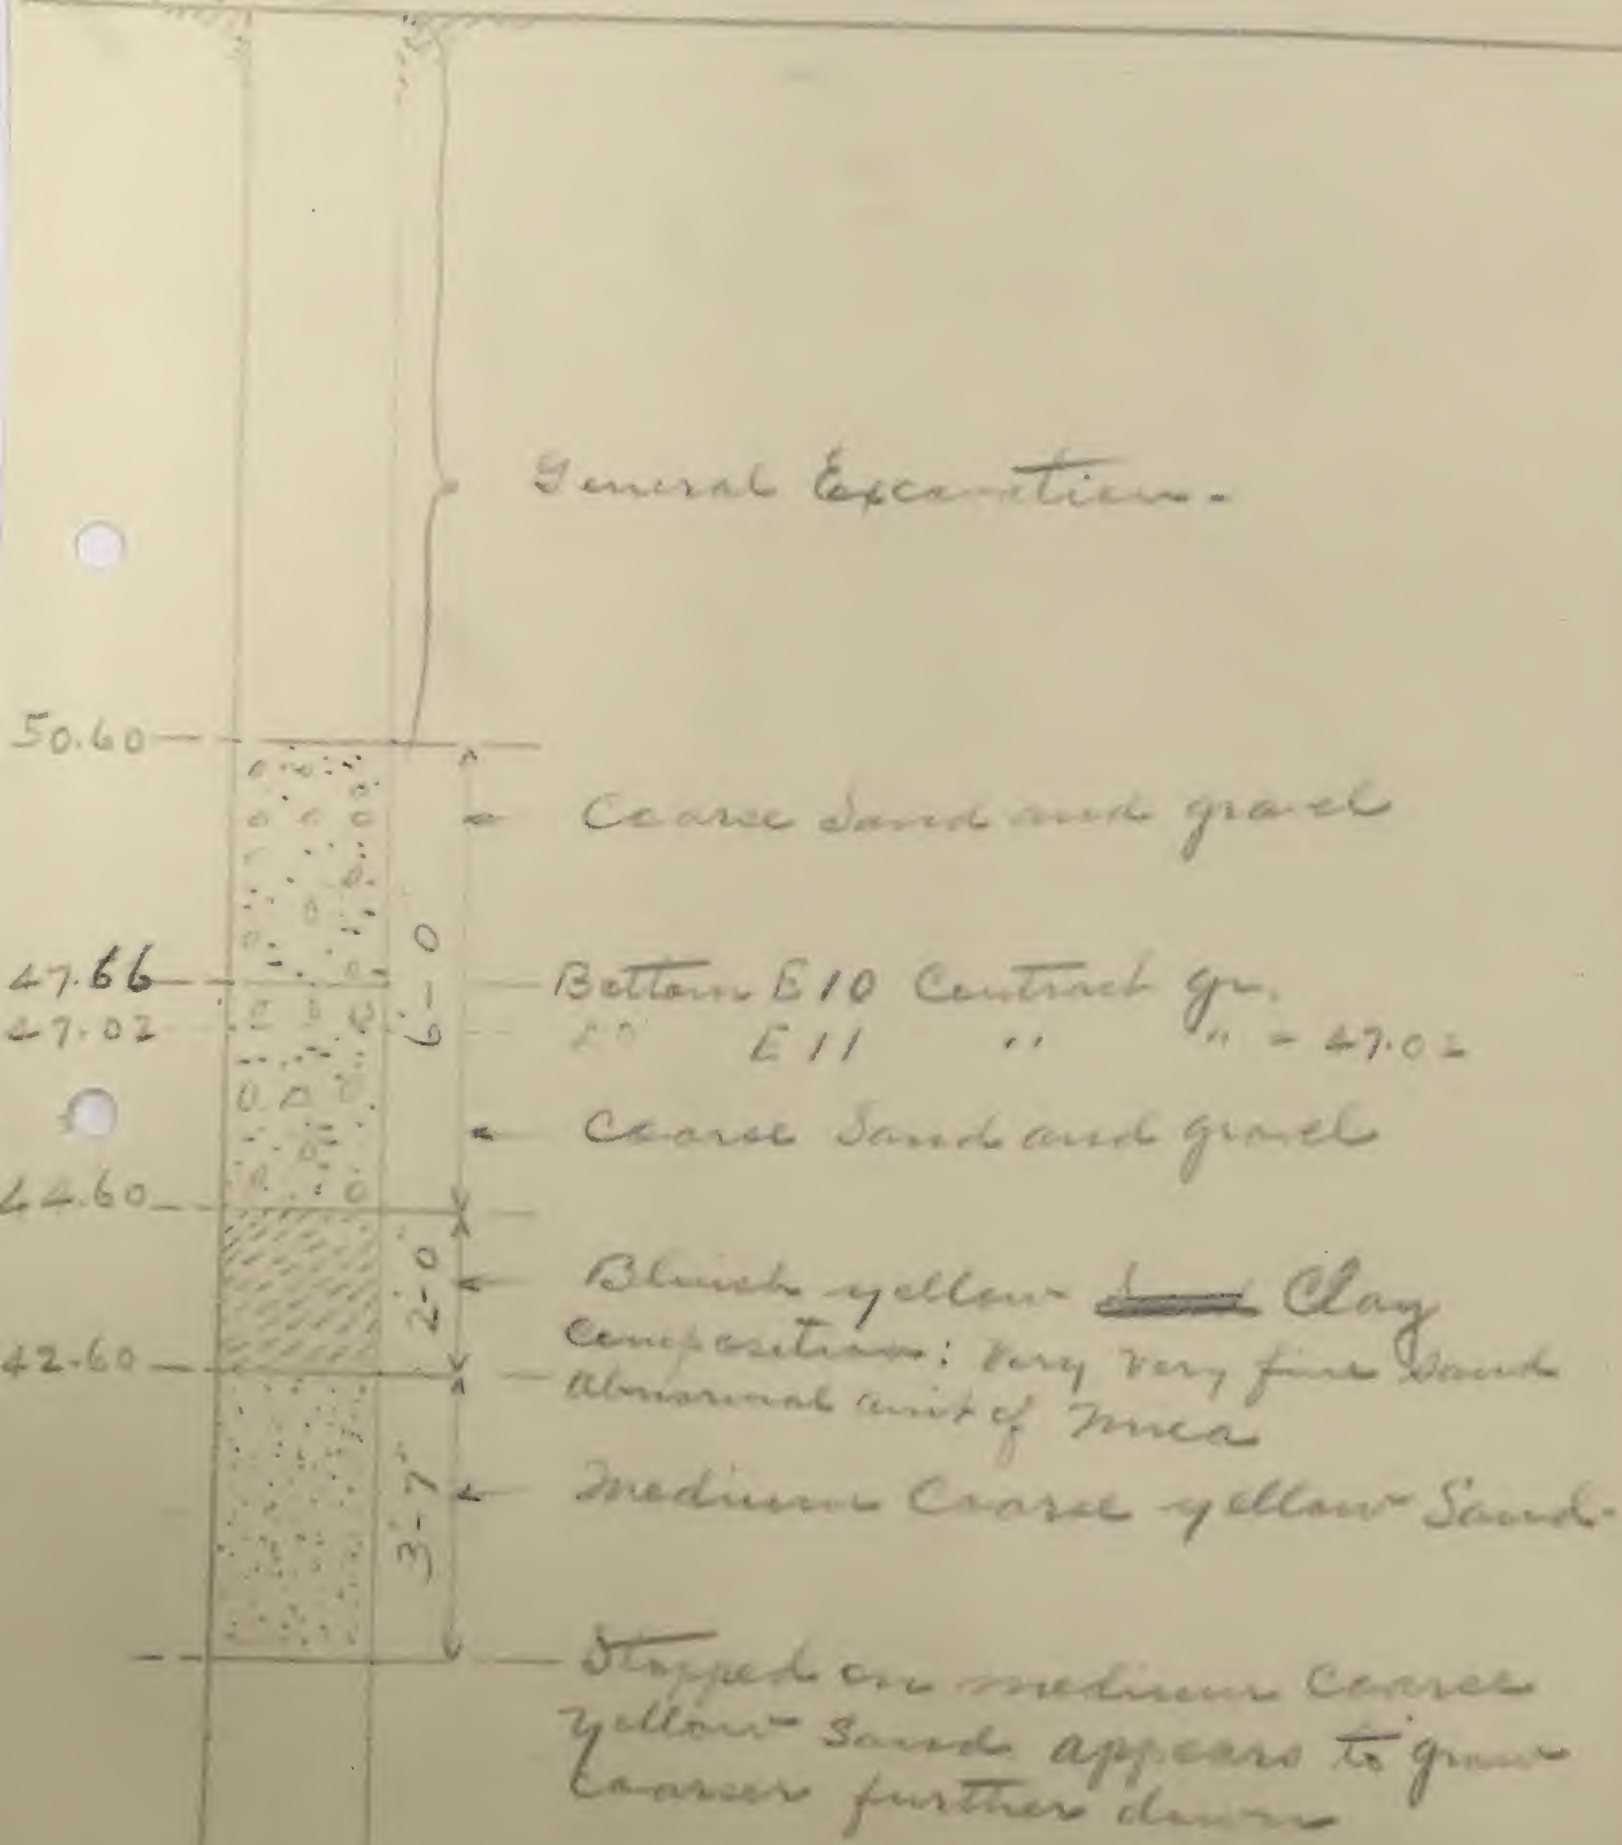 General Excavation.
50.60
Coarse Sand and gravel
6-0
47.66
Bottom E10 Contract gr.
47.02
Do E11 " " = 47.02
Coarse Sand and gravel
44.60
2-0
Bluish yellow Clay
Composition: Very Very fine Sand
42.60
Abnormal amt of Mica
3-7
Medium Coarse yellow Sand.
Stopped on medium coarse
yellow Sand appears to grow
coarser further down